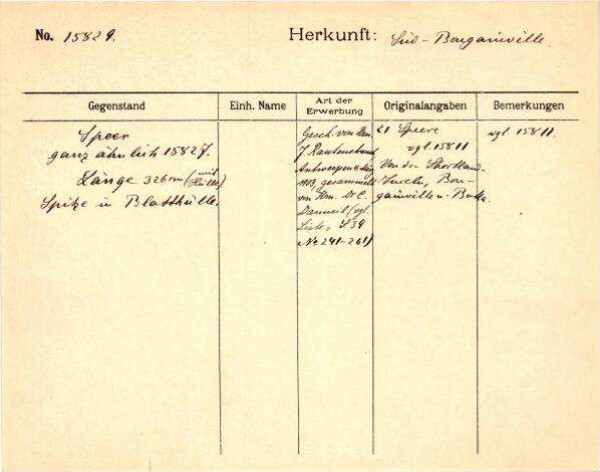 No. 15829.
Herkunft: Süd-Bougainville.
Gegenstand
Einh. Name
Art der Erwerbung
Originalangaben
Bemerkungen
Speer
ganz ähnlich 15827.
Länge 326cm (mit Hülle)
Spitze in Blatthülle.
Gesch. von Hrn.
J.
Antwerpen
gesammelt
von Hrn. Dr. E.
(vgl.
Liste, S 39
No 241-261)
21 Speere
vgl. 15811
Von den Shortland
Inseln, Bou-
gainville u. Buka.
vgl. 15811.